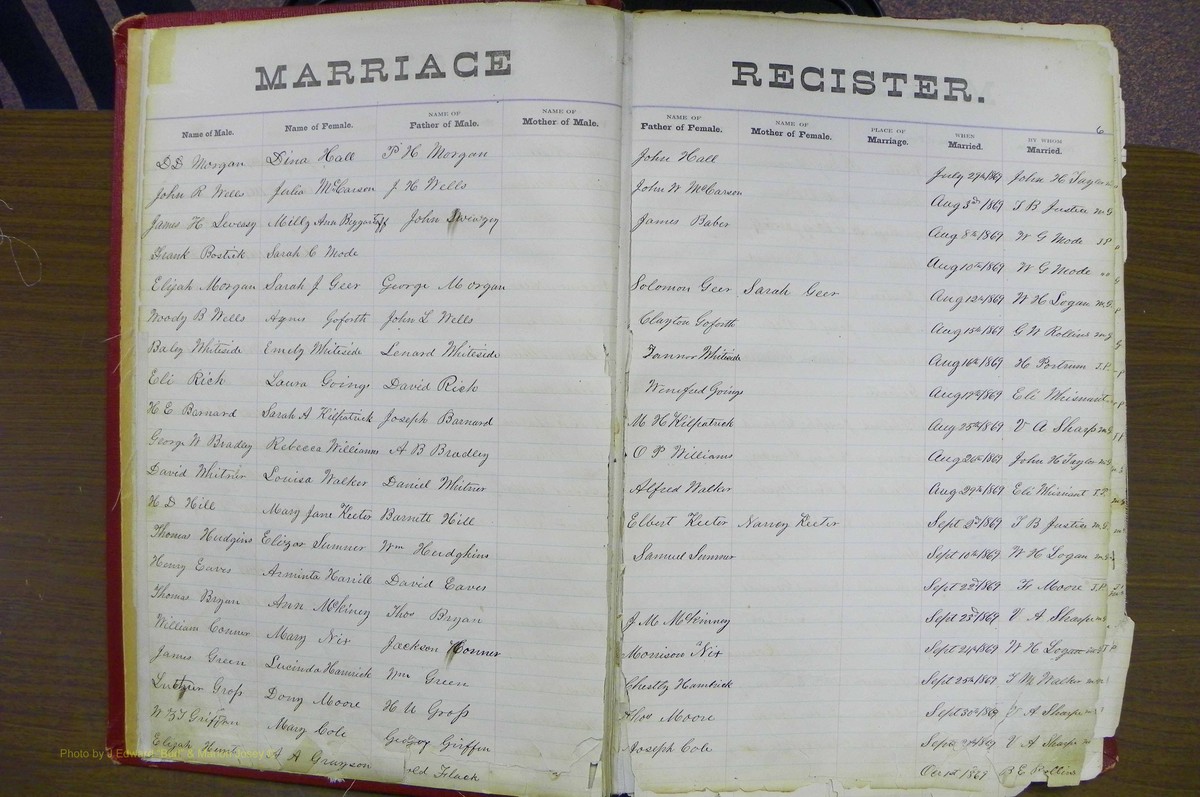 MARRIAGE REGISTER.
6
Name of Male. Name of Female. NAME OF Father of Male. NAME OF Mother of Male. NAME OF Father of Female. NAME OF Mother of Female. PLACE OF Marriage. WHEN Married. BY WHOM Married.
D D Morgan Dina Hall P H Morgan John Hall July 29th 1869 John H Taylor
John R Wells Julia McCarson J H Wells John W McCarson Aug 3rd 1869 T B Justice M G
James H Levessy Milly Ann John James Baber Aug 8th 1869 W G Mode J.P
Frank Bostick Sarah C Mode Aug 10th 1869 W G Mode
Elijah Morgan Sarah J Geer George Morgan Solomon Geer Sarah Geer Aug 12th 1869 W H Logan M.G.
Woody B Wells Agnes Goforth John L Wells Clayton Goforth Aug 15th 1869 G W Rollins M G
Baley Whiteside Emily Whiteside Lenard Whiteside Whiteside Aug 16th 1869 H J.P.
Eli Rich Laura Goings David Rich Winifred Goings Aug 19th 1869 Eli Whisnant
H E Barnard Sarah A Kilpatrick Joseph Barnard M H Kilpatrick Aug 25th 1869 V A Sharpe M G
George W Bradley Rebecca Williams A B Bradley O P Williams Aug 26th 1869 John H Taylor M G
David Whitner Louisa Walker Daniel Whitner Alfred Walker Aug 29th 1869 Eli Whisnant J.P.
H D Hill Mary Jane Keeter Barnett Hill Elbert Keeter Nancy Keeter Sept 1869 T B Justice M G
Thomas Hudgins Elizar Sumner Wm Hudghins Samuel Sumner Sept 10th 1869 W H Logan M G
Henry Eaves Arminta Harrill David Eaves Sept 22d 1869 Moore J.P.
Thomas Bryan Ann McKiney Thos Bryan J M McKinney Sept 23d 1869 V A Sharpe
William Conner Mary Nix Jackson Conner Morrison Nix Sept 24th 1869 W H Logan
James Green Lucinda Hamrick Wm Green Chestly Hambrick Sept 25th 1869 Walker
Gross Dony Moore H U Gross Thos Moore Sept 30th 1869 V A Sharpe
Griffin Mary Cole Griffin Joseph Cole Sept 1869 V A Sharpe
Elijah A A Grayson Flack Oct 1st 1869 B E Rollins
Photo by J Edward